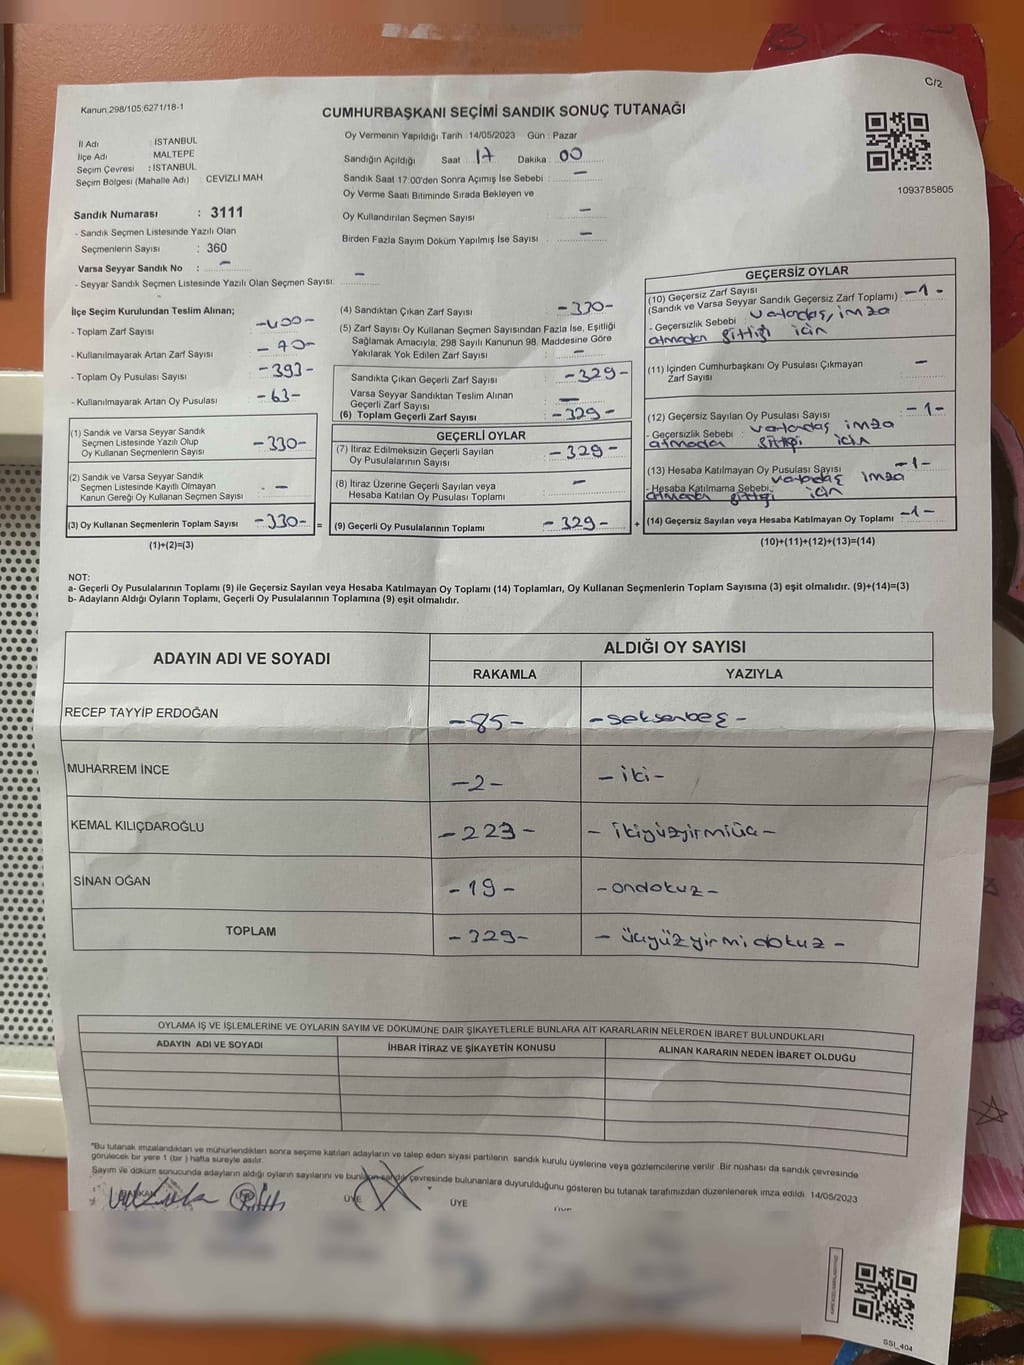 C/2
Kanun.298/105;6271/18-1
CUMHURBAŞKANI SEÇİMİ SANDIK SONUÇ TUTANAĞI
1093785805
İl Adı : İSTANBUL
İlçe Adı MALTEPE
Seçim Çevresi : İSTANBUL
Seçim Bölgesi (Mahalle Adı) CEVİZLİ MAH
Sandık Numarası : 3111
- Sandık Seçmen Listesinde Yazılı Olan
Seçmenlerin Sayısı : 360
Varsa Seyyar Sandık No : -
- Seyyar Sandık Seçmen Listesinde Yazılı Olan Seçmen Sayısı: -
Oy Vermenin Yapıldığı Tarih : 14/05/2023 Gün : Pazar
Sandığın Açıldığı Saat 17 Dakika 00
Sandık Saat 17:00'den Sonra Açımış İse Sebebi : -
Oy Verme Saati Bitiminde Sırada Bekleyen ve
Oy Kullandırılan Seçmen Sayısı -
Birden Fazla Sayım Döküm Yapılmış İse Sayısı -
İlçe Seçim Kurulundan Teslim Alınan;
- Toplam Zarf Sayısı -400-
- Kullanılmayarak Artan Zarf Sayısı -70-
- Toplam Oy Pusulası Sayısı -393-
- Kullanılmayarak Artan Oy Pusulası -63-
(1) Sandık ve Varsa Seyyar Sandık
Seçmen Listesinde Yazılı Olup
Oy Kullanan Seçmenlerin Sayısı -330-
(2) Sandık ve Varsa Seyyar Sandık
Seçmen Listesinde Kayıtlı Olmayan
Kanun Gereği Oy Kullanan Seçmen Sayısı -
(3) Oy Kullanan Seçmenlerin Toplam Sayısı -330- =
(1)+(2)=(3)
(4) Sandıktan Çıkan Zarf Sayısı -330-
(5) Zarf Sayısı Oy Kullanan Seçmen Sayısından Fazla İse, Eşitliği
Sağlamak Amacıyla, 298 Sayılı Kanunun 98. Maddesine Göre
Yakılarak Yok Edilen Zarf Sayısı : -
Sandıkta Çıkan Geçerli Zarf Sayısı -329-
Varsa Seyyar Sandıktan Teslim Alınan
Geçerli Zarf Sayısı -
(6) Toplam Geçerli Zarf Sayısı -329-
GEÇERLİ OYLAR
(7) İtiraz Edilmeksizin Geçerli Sayılan
Oy Pusulasının Sayısı -329-
(8) İtiraz Üzerine Geçerli Sayılan veya
Hesaba Katılan Oy Pusulası Toplamı -
(9) Geçerli Oy Pusulalarının Toplamı -329- +
GEÇERSİZ OYLAR
(10) Geçersiz Zarf Sayısı
(Sandık ve Varsa Seyyar Sandık Geçersiz Zarf Toplamı) -1-
- Geçersizlik Sebebi : vatandaş, imza
atmadan gittiği için
(11) İçinden Cumhurbaşkanı Oy Pusulası Çıkmayan
Zarf Sayısı -
(12) Geçersiz Sayılan Oy Pusulası Sayısı -1-
- Geçersizlik Sebebi : vatandaş imza
atmadan gittiği için
(13) Hesaba Katılmayan Oy Pusulası Sayısı -1-
- Hesaba Katılmama Sebebi: vatandaş imza
atmadan gittiği için
(14) Geçersiz Sayılan veya Hesaba Katılmayan Oy Toplamı -1-
(10)+(11)+(12)+(13)=(14)
NOT:
a- Geçerli Oy Pusulalarının Toplamı (9) ile Geçersiz Sayılan veya Hesaba Katılmayan Oy Toplamı (14) Toplamları, Oy Kullanan Seçmenlerin Toplam Sayısına (3) eşit olmalıdır. (9)+(14)=(3)
b- Adayların Aldığı Oyların Toplamı, Geçerli Oy Pusulalarının Toplamına (9) eşit olmalıdır.
ADAYIN ADI VE SOYADI ALDIĞI OY SAYISI
RAKAMLA YAZIYLA
RECEP TAYYİP ERDOĞAN -85- -seksenbeş-
MUHARREM İNCE -2- -iki-
KEMAL KILIÇDAROĞLU -223- -ikiyüzyirmiüç-
SİNAN OĞAN -19- -ondokuz-
TOPLAM -329- -üçyüzyirmidokuz-
OYLAMA İŞ VE İŞLEMLERİNE VE OYLARIN SAYIM VE DÖKÜMÜNE DAİR ŞİKAYETLERLE BUNLARA AİT KARARLARIN NELERDEN İBARET BULUNDUKLARI
ADAYIN ADI VE SOYADI İHBAR İTİRAZ VE ŞİKAYETİN KONUSU ALINAN KARARIN NEDEN İBARET OLDUĞU
*Bu tutanak imzalandıktan ve mühürlendikten sonra seçime katılan adayların ve talep eden siyasi partilerin sandık kurulu üyelerine veya gözlemcilerine verilir. Bir nüshası da sandık çevresinde
görülecek bir yere 1 (bir) hafta süreyle asılır.
Sayım ve döküm sonucunda adayların aldığı oyların sayılarını ve bunların sandık çevresinde bulunanlara duyurulduğunu gösteren bu tutanak tarafımızdan düzenlenerek imza edildi. 14/05/2023
ÜYE ÜYE
SSİ_404